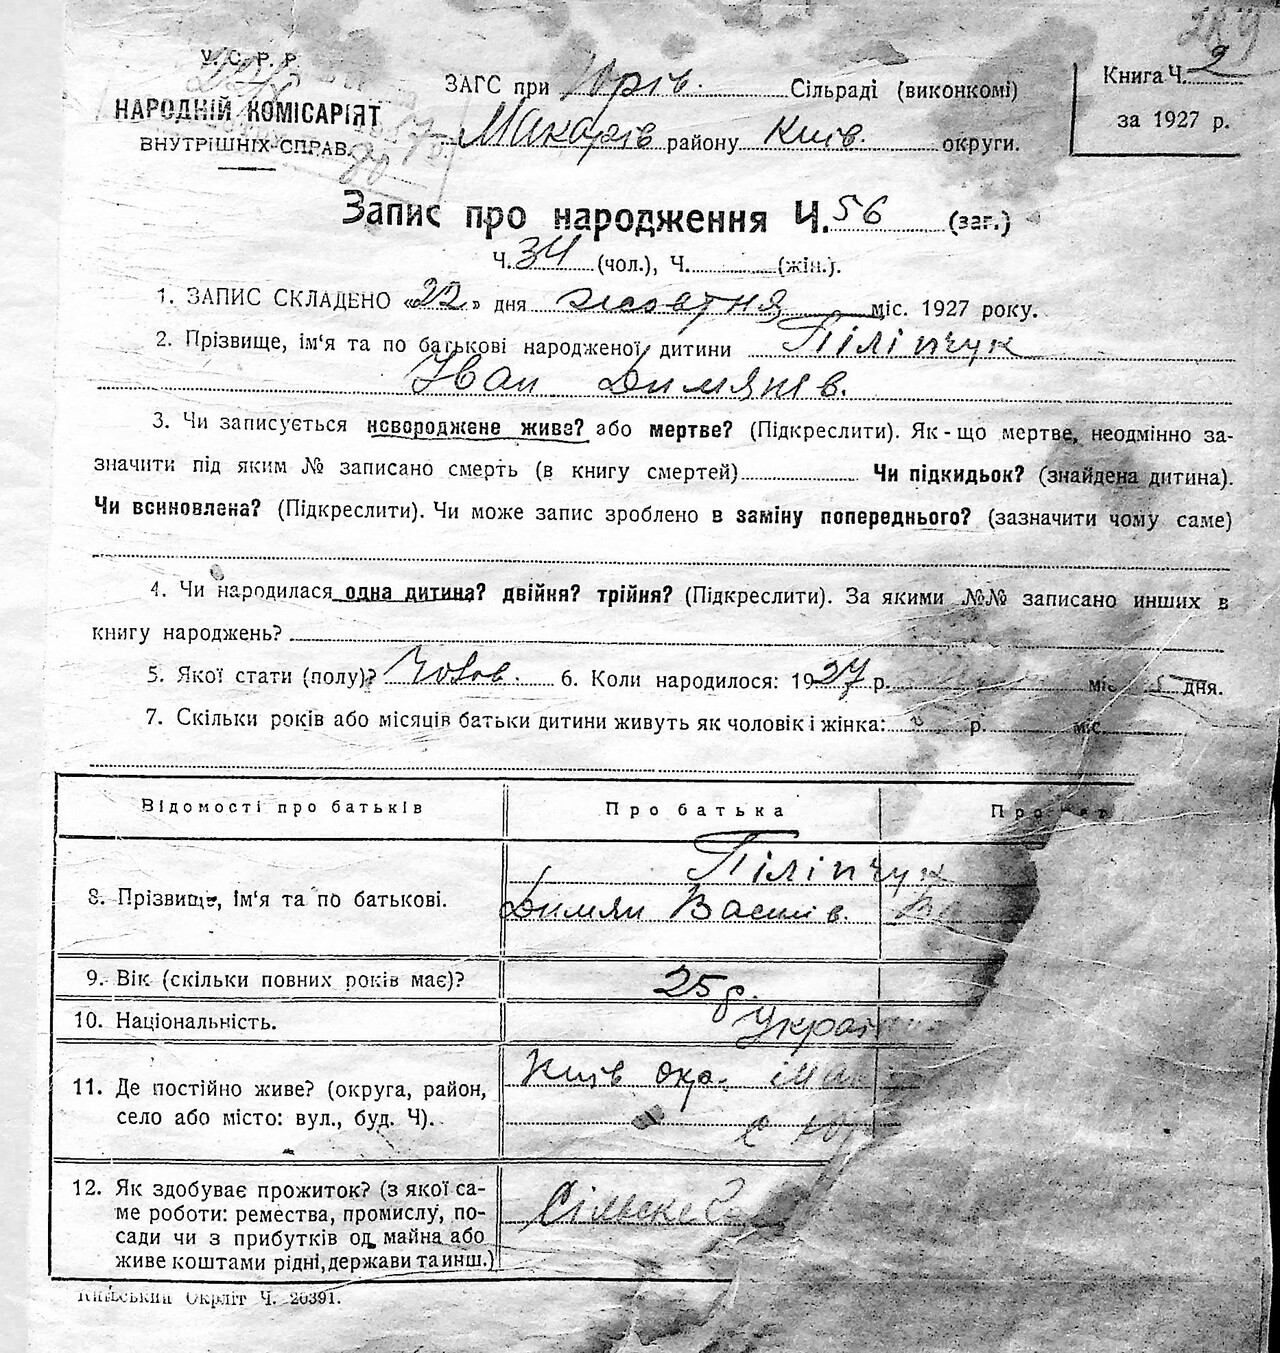 У. С. Р. Р.
НАРОДНІЙ КОМІСАРІЯТ
ВНУТРІШНІХ СПРАВ.
ЗАГС при Юрів. Сільраді (виконкомі)
Макарів району Київ. округи.
Книга Ч. 2
за 1927 р.
Запис про народження Ч. 56 (заг.)
Ч. 34 (чол.), Ч. (жін.).
1. ЗАПИС СКЛАДЕНО «22» дня жовтня міс. 1927 року.
2. Прізвище, ім'я та по батькові народженої дитини Піліпчук
Іван Димянів.
3. Чи записується новороджене живе? або мертве? (Підкреслити). Як-що мертве, неодмінно за-
значити під яким № записано смерть (в книгу смертей) Чи підкидьок? (знайдена дитина).
Чи всиновлена? (Підкреслити). Чи може запис зроблено в заміну попереднього? (зазначити чому саме)
4. Чи народилася одна дитина? двійня? трійня? (Підкреслити). За якими №№ записано инших в
книгу народжень?
5. Якої стати (полу)? Чолов. 6. Коли народилося: 1927 р. міс. 5 дня.
7. Скільки років або місяців батьки дитини живуть як чоловік і жінка: р. міс.
Відомості про батьків Про батька Про
8. Прізвище, ім'я та по батькові. Піліпчук
Димян Васил в.
9. Вік (скільки повних років має)? 25 р.
10. Національність. Україн
11. Де постійно живе? (округа, район, Київ окр.
село або місто: вул., буд. Ч). с
12. Як здобуває прожиток? (з якої са-
ме роботи: ремества, промислу, по- Сільске
сади чи з прибутків од майна або
живе коштами рідні, держави та инш.)
Київський Окрліт Ч. 20391.